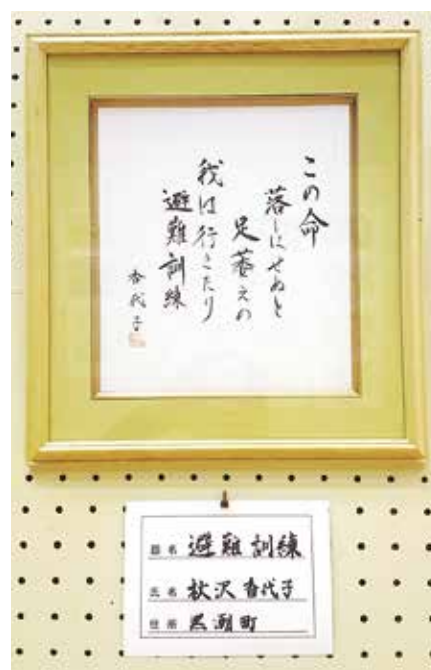 この命
落しはせぬと
足萎えの
我は行きたり
避難訓練
香代子
題名 避難訓練
氏名 秋沢香代子
住所 黒潮町